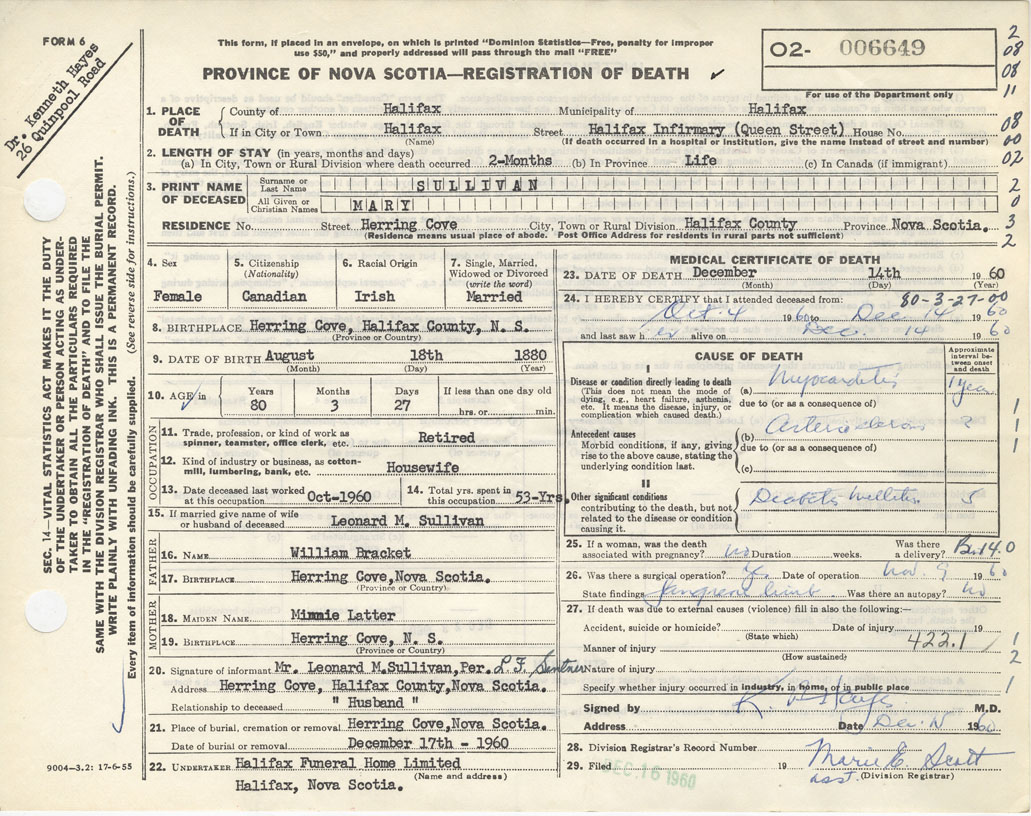 FORM 6
Dr. Kenneth Hayes
26 Quinpool Road
This form, if placed in an envelope, on which is printed "Dominion Statistics—Free, penalty for improper
use $50," and properly addressed will pass through the mail "FREE"
PROVINCE OF NOVA SCOTIA—REGISTRATION OF DEATH ✓
O2- 006649
For use of the Department only
2
08
08
11
08
00
02
2
0
3
2
1. PLACE OF DEATH County of Halifax Municipality of Halifax
If in City or Town Halifax Street Halifax Infirmary (Queen Street) House No.
(Name) (If death occurred in a hospital or institution, give the name instead of street and number)
2. LENGTH OF STAY (in years, months and days)
(a) In City, Town or Rural Division where death occurred 2-Months (b) In Province Life (c) In Canada (if immigrant)
3. PRINT NAME OF DECEASED Surname or Last Name SULLIVAN
All Given or Christian Names MARY
RESIDENCE No. Street Herring Cove City, Town or Rural Division Halifax County Province Nova Scotia.
(Residence means usual place of abode. Post Office Address for residents in rural parts not sufficient)
4. Sex Female
5. Citizenship (Nationality) Canadian
6. Racial Origin Irish
7. Single, Married, Widowed or Divorced (write the word) Married
8. BIRTHPLACE Herring Cove, Halifax County, N. S.
(Province or Country)
9. DATE OF BIRTH August 18th 1880
(Month) (Day) (Year)
10. AGE in Years 80 Months 3 Days 27 If less than one day old hrs. or min.
OCCUPATION
11. Trade, profession, or kind of work as spinner, teamster, office clerk, etc. Retired
12. Kind of industry or business, as cotton-mill, lumbering, bank, etc. Housewife
13. Date deceased last worked at this occupation Oct-1960
14. Total yrs. spent in this occupation 53-Yrs.
15. If married give name of wife or husband of deceased Leonard M. Sullivan
FATHER
16. NAME William Bracket
17. BIRTHPLACE Herring Cove, Nova Scotia.
(Province or Country)
MOTHER
18. MAIDEN NAME Minnie Latter
19. BIRTHPLACE Herring Cove, N. S.
(Province or Country)
20. Signature of informant Mr. Leonard M.Sullivan,Per. L.F.
Address Herring Cove, Halifax County,Nova Scotia.
Relationship to deceased " Husband "
21. Place of burial, cremation or removal Herring Cove,Nova Scotia.
Date of burial or removal December 17th - 1960
22. UNDERTAKER Halifax Funeral Home Limited
(Name and address)
Halifax, Nova Scotia.
MEDICAL CERTIFICATE OF DEATH
23. DATE OF DEATH December 14th 1960
(Month) (Day) (Year)
24. I HEREBY CERTIFY that I attended deceased from: 80-3-27-00
Oct 4 1960 to Dec 14 1960
and last saw h er alive on Dec. 14 1960
CAUSE OF DEATH
Approximate interval between onset and death
I
Disease or condition directly leading to death
(This does not mean the mode of dying, e.g., heart failure, asthenia, etc. It means the disease, injury, or complication which caused death.)
(a) Myocarditis 1 year
due to (or as a consequence of)
Antecedent causes
Morbid conditions, if any, giving rise to the above cause, stating the underlying condition last.
(b)
due to (or as a consequence of)
(c)
II
Other significant conditions
contributing to the death, but not related to the disease or condition causing it.
Diabetes Mellitus 5
1
1
1
25. If a woman, was the death associated with pregnancy? no Duration weeks. Was there a delivery?
26. Was there a surgical operation? Date of operation Nov. 9 1960
State findings Gangrene limb Was there an autopsy? no
27. If death was due to external causes (violence) fill in also the following:—
Accident, suicide or homicide? Date of injury 19
(State which)
Manner of injury 422.1
(How sustained)
Nature of injury
Specify whether injury occurred in industry, in home, or in public place
1
2
1
Signed by K. Hayes M.D.
Address Date Dec. 1960
28. Division Registrar's Record Number
29. Filed DEC 16 1960 19 Marie E. Scott
asst. (Division Registrar)
SEC. 14—VITAL STATISTICS ACT MAKES IT THE DUTY
OF THE UNDERTAKER OR PERSON ACTING AS UNDER-
TAKER TO OBTAIN ALL THE PARTICULARS REQUIRED
IN THE "REGISTRATION OF DEATH" AND TO FILE THE
SAME WITH THE DIVISION REGISTRAR WHO SHALL ISSUE THE BURIAL PERMIT.
WRITE PLAINLY WITH UNFADING INK. THIS IS A PERMANENT RECORD.
Every item of information should be carefully supplied. (See reverse side for instructions.)
9004-3.2: 17-6-55